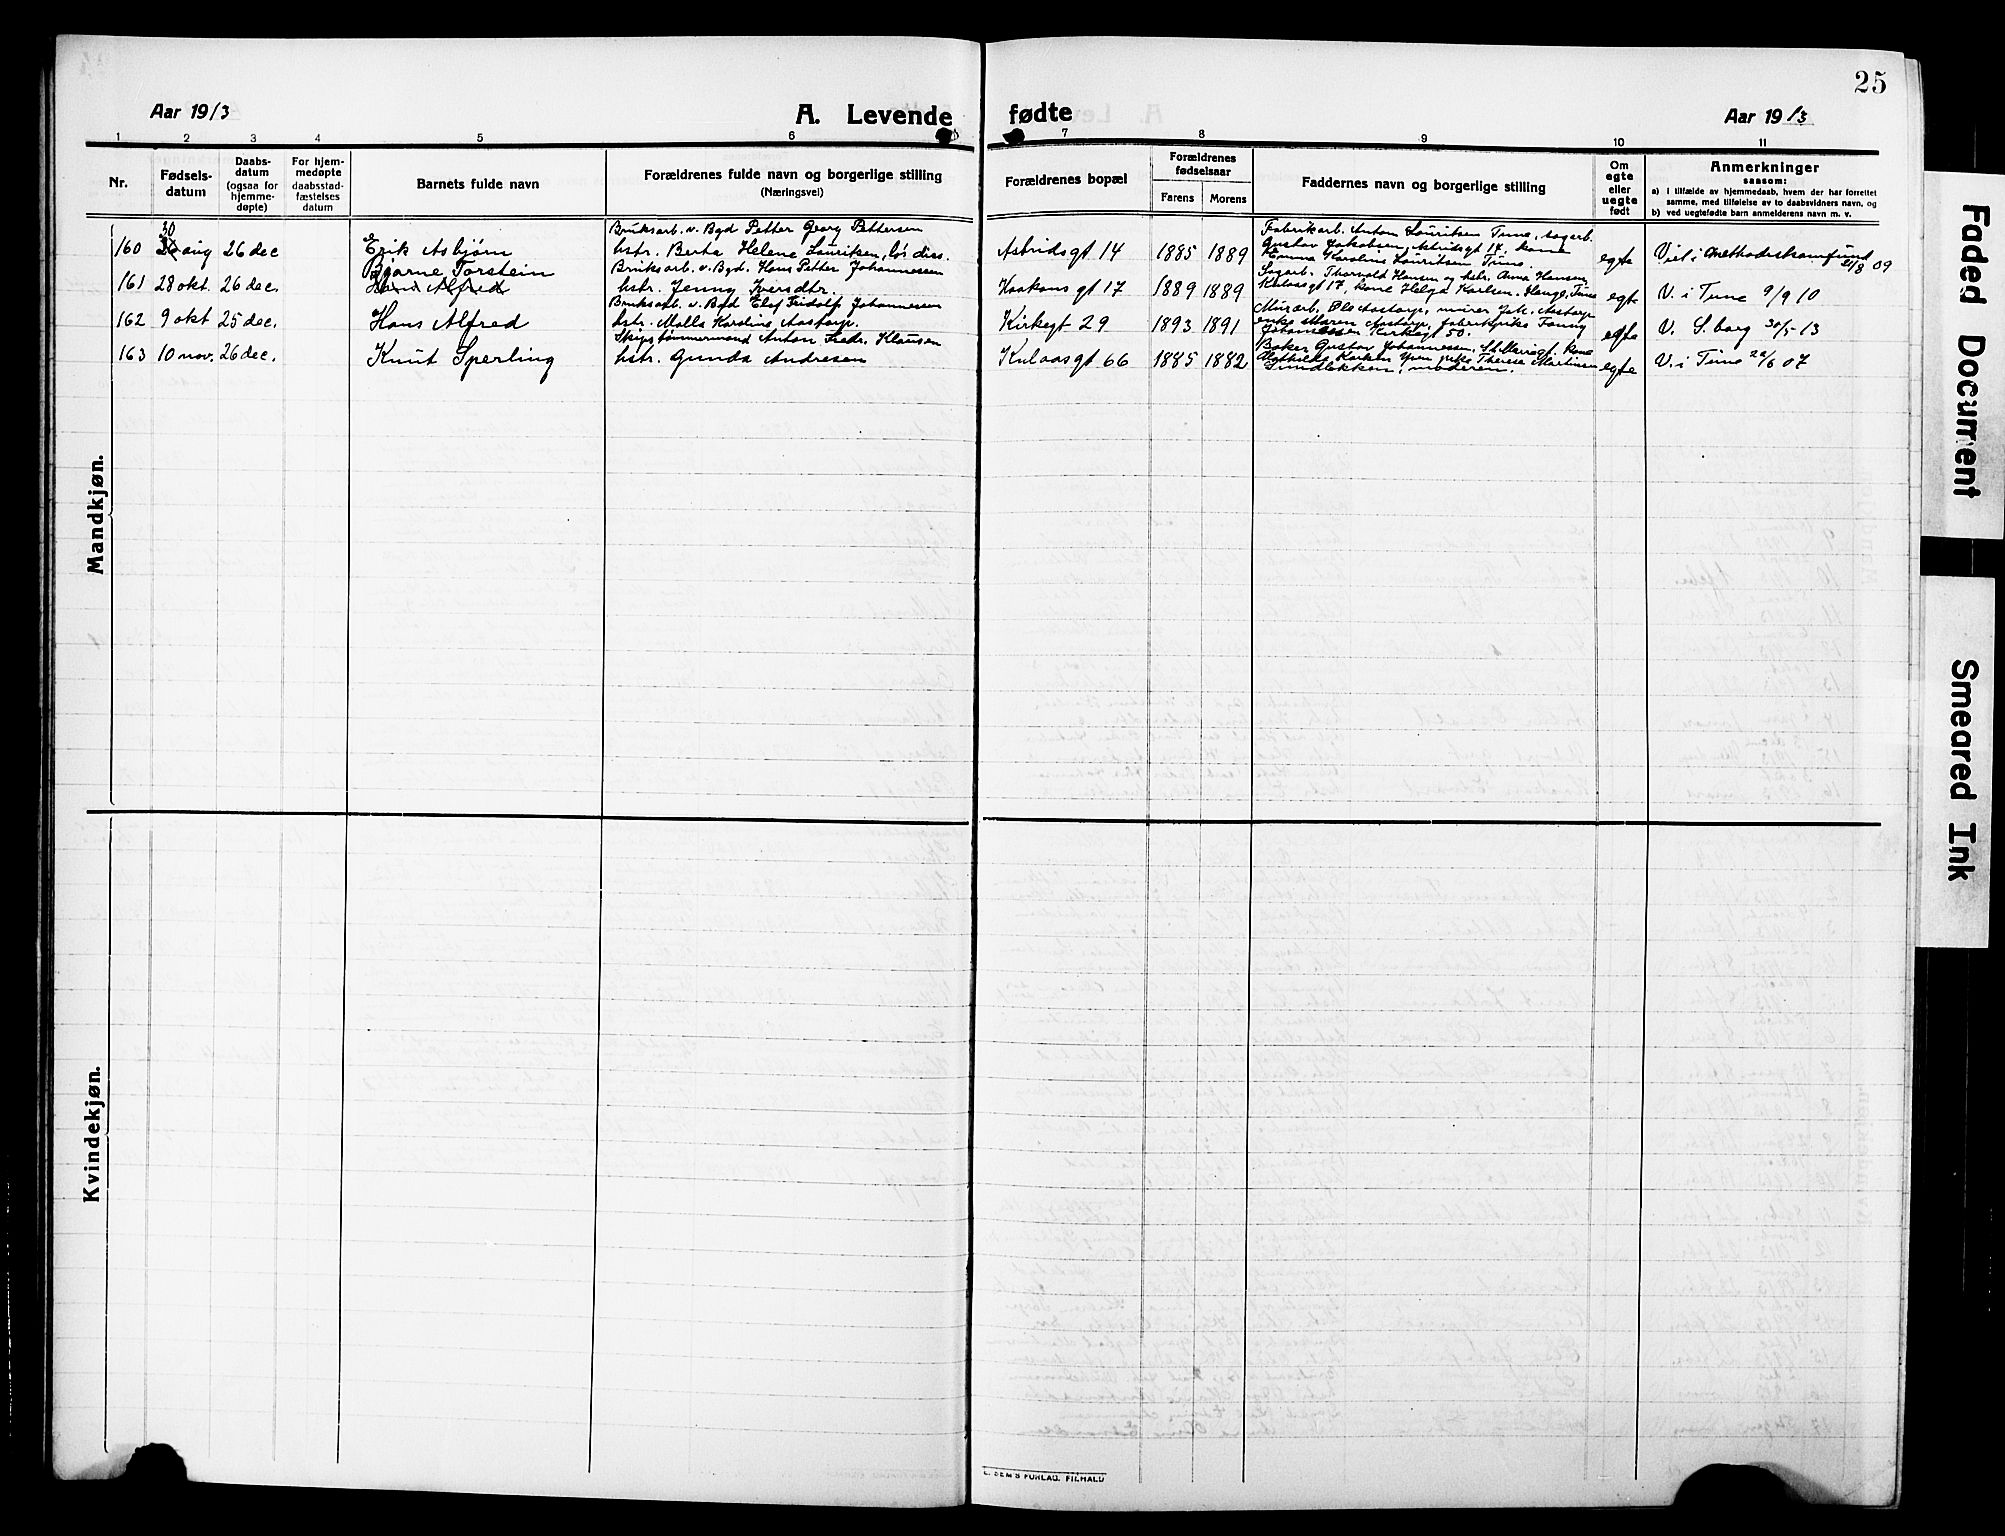 25
Aar 1913
A. Levende fødte
Aar 1913
1 2 3 4 5 6 7 8 9 10 11
Nr.
Fødsels-
datum
Daabs-
datum
(ogsaa for
hjemme-
døpte)
For hjem-
medøpte
daabsstad-
fæstelses
datum
Barnets fulde navn
Forældrenes fulde navn og borgerlige stilling
(Næringsvei)
Forældrenes bopæl
Forældrenes
fødselsaar
Farens Morens
Faddernes navn og borgerlige stilling
Om
egte
eller
uegte
født
Anmerkninger
saasom:
a) i tilfælde av hjemmedaab, hvem der har forrettet
samme, med tilføielse av to daabsvidners navn, og
b) ved uegtefødte barn anmelderens navn m. v.
Mandkjøn.
160 30 aug 26 dec
Erik Asbjørn
Bruksarb. v. Bgd Petter Georg Pettersen
hstr. Berta Helene Lauritsen, lov. diss.
Astridsgt 14 1885 1889
Fabrikarb. Anton Lauritsen Tune, sagarb.
Gustav Jakobsen, Astridsgt 17, kone
Emma Karoline Lauritsen Tune.
egte
Viet i Methodistsamfund 21/8 09
161 28 okt. 26 dec.
Bjarne Torstein
Hans Alfred
Bruksarb. v. Bgd. Hans Petter Johannessen
hstr. Jenny Iversdtr.
Haakons gt 17 1889 1889
Sagarb. Thorvald Hansen og hstr. Anna Hansen,
Kulaasgt 17, kone Helga Karlsen, Hauge, Tune
egte
V. i Tune 9/9 10
162 9 okt 25 dec.
Hans Alfred
Bruksarb. v. Bgd Elof Fridolf Johannessen
hstr. Malla Karoline Aastorp.
Kirkegt 29 1893 1891
Murarb. Ole Aastorp, murer Joh. Aastorp
enke Maren Aastorp, fabrikpike Fanny
Johannessen Kirkegt 50.
egte
V. S.borg 30/5 13
163 10 nov. 26 dec.
Knut Sperling
Skipstømmermand Anton Fredr. Klausen
hstr. Gunda Andresen
Kulaasgt 66 1885 1882
Baker Gustav Johannessen, St. Mariegt, kone
Therese Martinsen
moderen.
egte
V. i Tune 22/6 07
Kvindekjøn.
E. SEM'S FORLAG. F.HALD
Faded Document
Smeared Ink